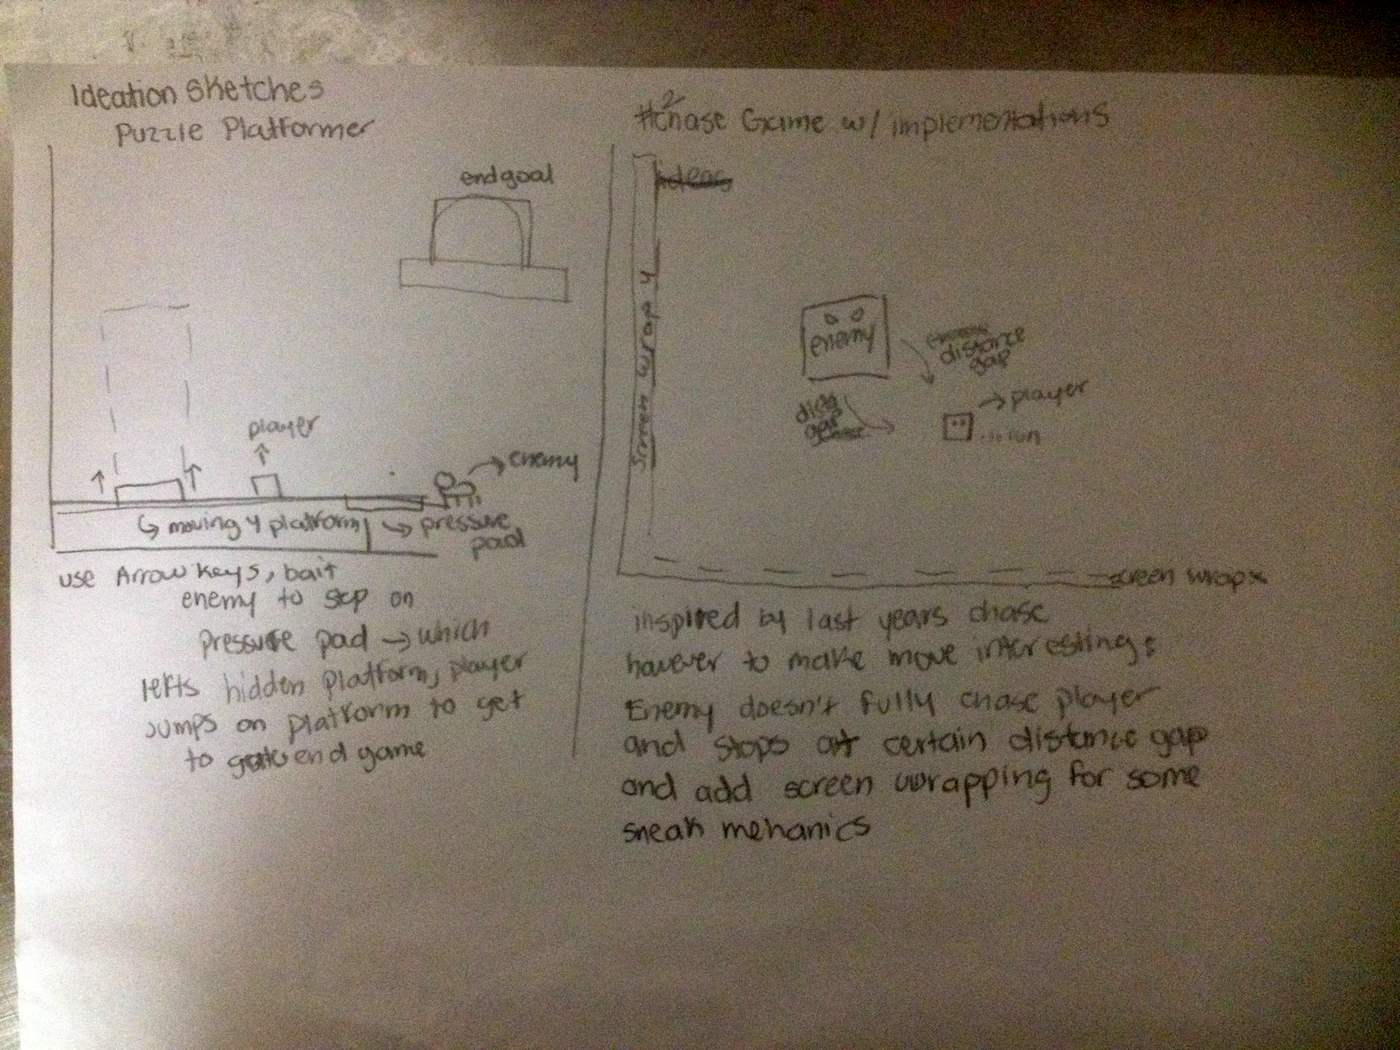 Ideation Sketches
Puzzle Platformer
endgoal
player
enemy
moving y platform
pressure
pad
use Arrow keys, bait
enemy to step on
pressure pad → which
lefts hidden platform, player
Jumps on platform to get
to end game
#2 Chase Game w/ implementations
ideas
screen wrap y
enemy
distance
gap
player
run
screen wrap x
inspired by last years chase
however to make move interesting:
Enemy doesn't fully chase player
and stops at certain distance gap
and add screen wrapping for some
sneak mehanics